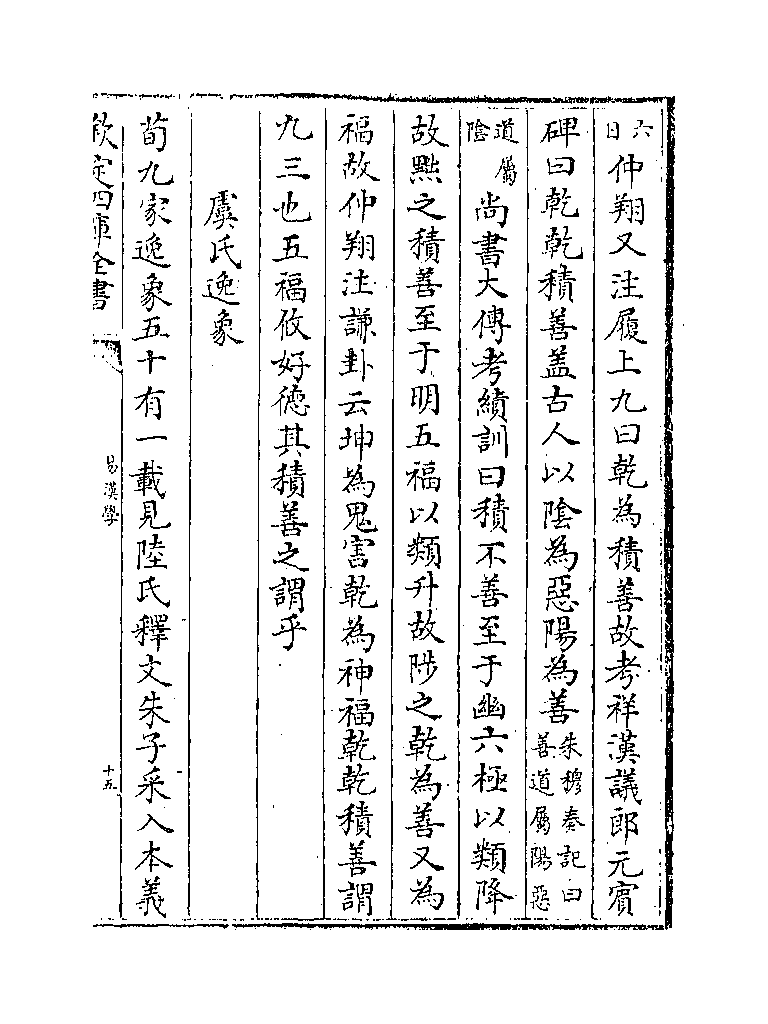 六日仲翔又注履上九曰乾為積善故考祥漢議郎元賓
碑曰乾乾積善盖古人以陰為惡陽為善朱穆奏記曰善道屬陽惡
道屬陰尚書大傳考績訓曰積不善至于幽六極以類降
故黜之積善至于明五福以類升故陟之乾為善又為
福故仲翔注謙卦云坤為鬼害乾為神福乾乾積善謂
九三也五福攸好德其積善之謂乎
虞氏逸象
荀九家逸象五十有一載見陸氏釋文朱子采入本義
欽定四庫全書
易漢學
十五